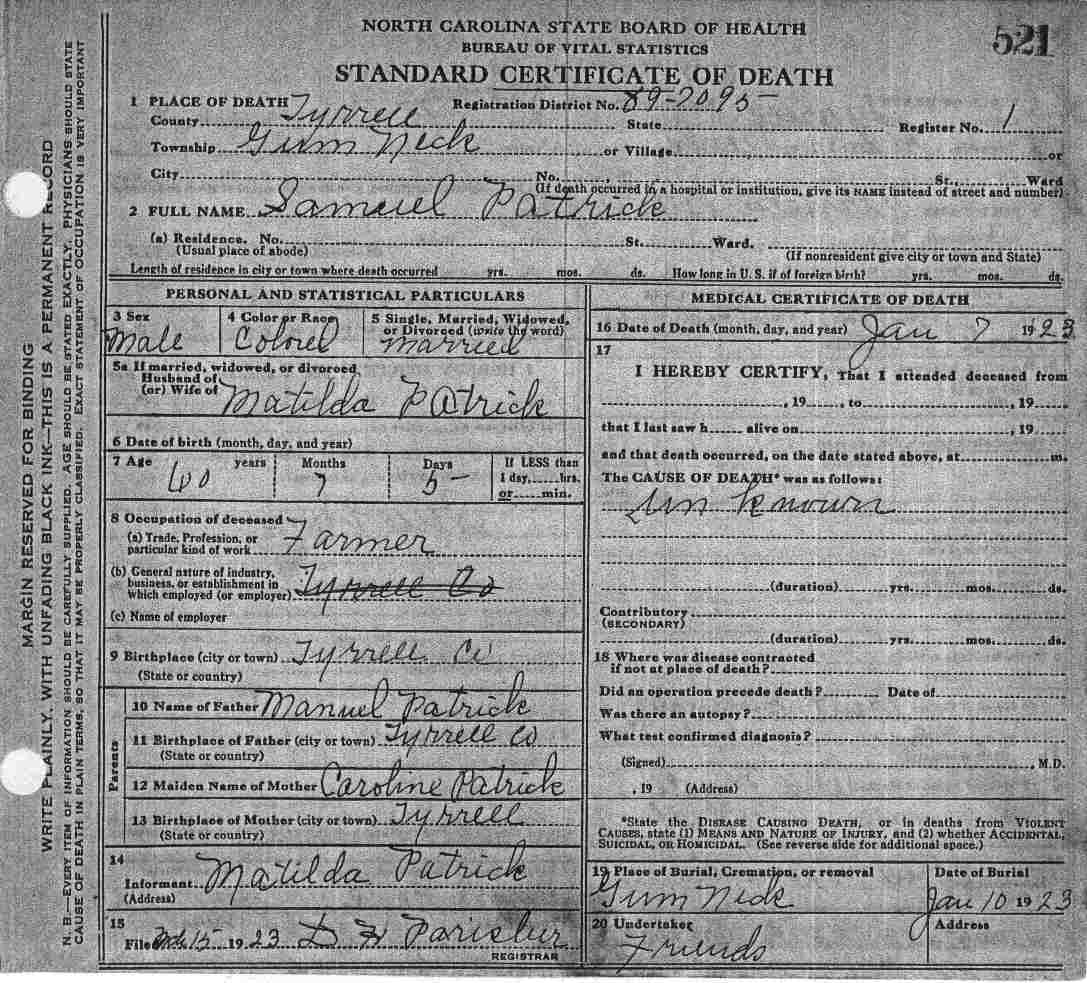 NORTH CAROLINA STATE BOARD OF HEALTH
BUREAU OF VITAL STATISTICS
STANDARD CERTIFICATE OF DEATH
521
1 PLACE OF DEATH
Registration District No. 89-7095
County Tyrrell State Register No. 1
Township Gum Neck or Village or
City No. St., Ward
(If death occurred in a hospital or institution, give its NAME instead of street and number)
2 FULL NAME Samuel Patrick
(a) Residence. No. St. Ward.
(Usual place of abode) (If nonresident give city or town and State)
Length of residence in city or town where death occurred yrs. mos. ds. How long in U. S. if of foreign birth? yrs. mos. ds.
PERSONAL AND STATISTICAL PARTICULARS
3 Sex 4 Color or Race 5 Single, Married, Widowed,
or Divorced (write the word)
Male Colored Married
5a If married, widowed, or divorced,
Husband of
(or) Wife of Matilda Patrick
6 Date of birth (month, day, and year)
7 Age years Months Days If LESS than
60 7 5 1 day, hrs.
or min.
8 Occupation of deceased
(a) Trade, Profession, or
particular kind of work Farmer
(b) General nature of industry,
business, or establishment in
which employed (or employer) Tyrrell Co
(c) Name of employer
9 Birthplace (city or town) Tyrrell Co
(State or country)
Parents
10 Name of Father Manuel Patrick
11 Birthplace of Father (city or town) Tyrrell Co
(State or country)
12 Maiden Name of Mother Caroline Patrick
13 Birthplace of Mother (city or town) Tyrrell
(State or country)
14
Informant Matilda Patrick
(Address)
15
Filed 15 1923 Parisher
REGISTRAR
MEDICAL CERTIFICATE OF DEATH
16 Date of Death (month, day, and year) Jan 7 1923
17
I HEREBY CERTIFY, That I attended deceased from
, 19 , to , 19
that I last saw h alive on , 19
and that death occurred, on the date stated above, at m.
The CAUSE OF DEATH* was as follows:
Unknown
(duration) yrs. mos. ds.
Contributory
(SECONDARY)
(duration) yrs. mos. ds.
18 Where was disease contracted
if not at place of death?
Did an operation precede death? Date of
Was there an autopsy?
What test confirmed diagnosis?
(Signed) , M.D.
, 19 (Address)
*State the DISEASE CAUSING DEATH, or in deaths from VIOLENT
CAUSES, state (1) MEANS AND NATURE OF INJURY, and (2) whether ACCIDENTAL,
SUICIDAL, OR HOMICIDAL. (See reverse side for additional space.)
19 Place of Burial, Cremation, or removal Date of Burial
Gum Neck Jan 10 1923
20 Undertaker Address
Friends
MARGIN RESERVED FOR BINDING
WRITE PLAINLY, WITH UNFADING BLACK INK—THIS IS A PERMANENT RECORD
N. B.—EVERY ITEM OF INFORMATION SHOULD BE CAREFULLY SUPPLIED. AGE SHOULD BE STATED EXACTLY. PHYSICIANS SHOULD STATE
CAUSE OF DEATH IN PLAIN TERMS, SO THAT IT MAY BE PROPERLY CLASSIFIED. EXACT STATEMENT OF OCCUPATION IS VERY IMPORTANT